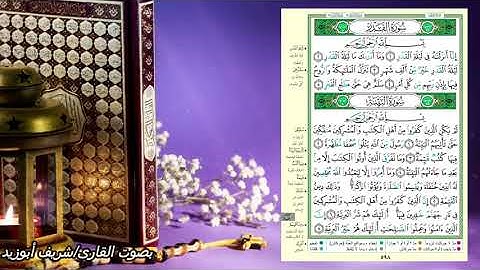 سُورَةُ القَدْرِ
بِسْمِ اللَّهِ الرَّحْمَٰنِ الرَّحِيمِ
إِنَّا أَنزَلْنَٰهُ فِي لَيْلَةِ الْقَدْرِ ١ وَمَا أَدْرَىٰكَ مَا لَيْلَةُ الْقَدْرِ ٢
لَيْلَةُ الْقَدْرِ خَيْرٌ مِّنْ أَلْفِ شَهْرٍ ٣ تَنَزَّلُ الْمَلَٰئِكَةُ وَالرُّوحُ
فِيهَا بِإِذْنِ رَبِّهِم مِّن كُلِّ أَمْرٍ ٤ سَلَٰمٌ هِيَ حَتَّىٰ مَطْلَعِ الْفَجْرِ ٥
سُورَةُ البَيِّنَةِ
بِسْمِ اللَّهِ الرَّحْمَٰنِ الرَّحِيمِ
لَمْ يَكُنِ الَّذِينَ كَفَرُوا مِنْ أَهْلِ الْكِتَٰبِ وَالْمُشْرِكِينَ مُنفَكِّينَ
حَتَّىٰ تَأْتِيَهُمُ الْبَيِّنَةُ ١ رَسُولٌ مِّنَ اللَّهِ يَتْلُوا صُحُفًا مُّطَهَّرَةً ٢
فِيهَا كُتُبٌ قَيِّمَةٌ ٣ وَمَا تَفَرَّقَ الَّذِينَ أُوتُوا الْكِتَٰبَ إِلَّا مِن بَعْدِ
مَا جَاءَتْهُمُ الْبَيِّنَةُ ٤ وَمَا أُمِرُوا إِلَّا لِيَعْبُدُوا اللَّهَ مُخْلِصِينَ
لَهُ الدِّينَ حُنَفَاءَ وَيُقِيمُوا الصَّلَوٰةَ وَيُؤْتُوا الزَّكَوٰةَ وَذَٰلِكَ
دِينُ الْقَيِّمَةِ ٥ إِنَّ الَّذِينَ كَفَرُوا مِنْ أَهْلِ الْكِتَٰبِ وَالْمُشْرِكِينَ
فِي نَارِ جَهَنَّمَ خَٰلِدِينَ فِيهَا أُولَٰئِكَ هُمْ شَرُّ الْبَرِيَّةِ ٦
إِنَّ الَّذِينَ ءَامَنُوا وَعَمِلُوا الصَّٰلِحَٰتِ أُولَٰئِكَ هُمْ خَيْرُ الْبَرِيَّةِ ٧
٥٩٨
بصوت القارئ/شريف أبوزيد